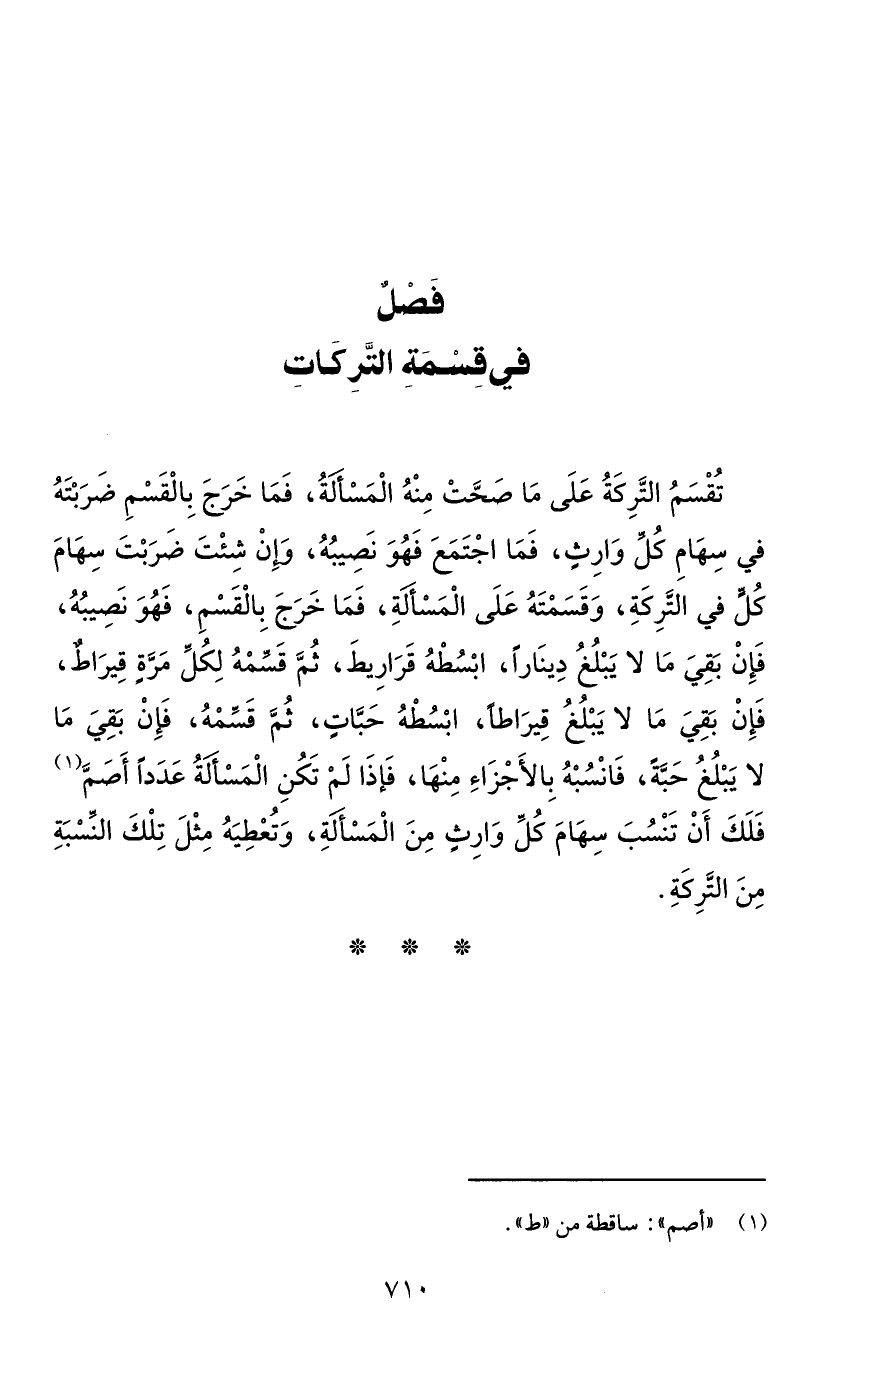 فَصْلٌ
في قِسْمَةِ التَّرِكَاتِ
تُقْسَمُ التَّرِكَةُ عَلَى مَا صَحَّتْ مِنْهُ الْمَسْأَلَةُ، فَمَا خَرَجَ بِالْقَسْمِ ضَرَبْتَهُ
في سِهَامِ كُلِّ وَارِثٍ، فَمَا اجْتَمَعَ فَهُوَ نَصِيبُهُ، وَإِنْ شِئْتَ ضَرَبْتَ سِهَامَ
كُلٍّ في التَّرِكَةِ، وَقَسَمْتَهُ عَلَى الْمَسْأَلَةِ، فَمَا خَرَجَ بِالْقَسْمِ، فَهُوَ نَصِيبُهُ،
فَإِنْ بَقِيَ مَا لا يَبْلُغُ دِينَاراً، ابْسُطْهُ قَرَارِيطَ، ثُمَّ قَسِّمْهُ لِكُلِّ مَرَّةٍ قِيرَاطٌ،
فَإِنْ بَقِيَ مَا لا يَبْلُغُ قِيرَاطاً، ابْسُطْهُ حَبَّاتٍ، ثُمَّ قَسِّمْهُ، فَإِنْ بَقِيَ مَا
لا يَبْلُغُ حَبَّةً، فَانْسُبْهُ بِالأَجْزَاءِ مِنْهَا، فَإذَا لَمْ تَكُنِ الْمَسْأَلَةُ عَدَداً أَصَمَّ(١)
فَلَكَ أَنْ تَنْسُبَ سِهَامَ كُلِّ وَارِثٍ مِنَ الْمَسْأَلَةِ، وَتُعْطِيَهُ مِثْلَ تِلْكَ النِّسْبَةِ
مِنَ التَّرِكَةِ.
* * *
(١) «أصم»: ساقطة من «ط».
٧١٠